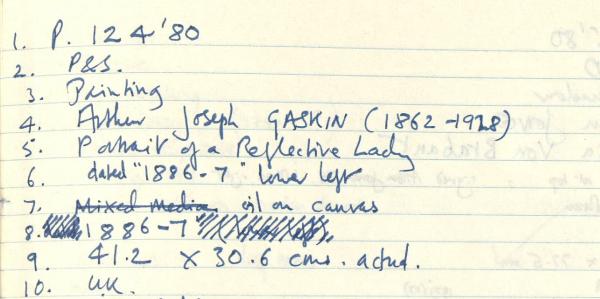 1. P. 124'80
2. P&S.
3. Painting
4. Arthur Joseph GASKIN (1862-1928)
5. Portrait of a Reflective Lady
6. dated "1886-7" lower left
7. Mixed Media oil on canvas
8. 1886-7
9. 41.2 × 30.6 cms. actual.
10. U.K.